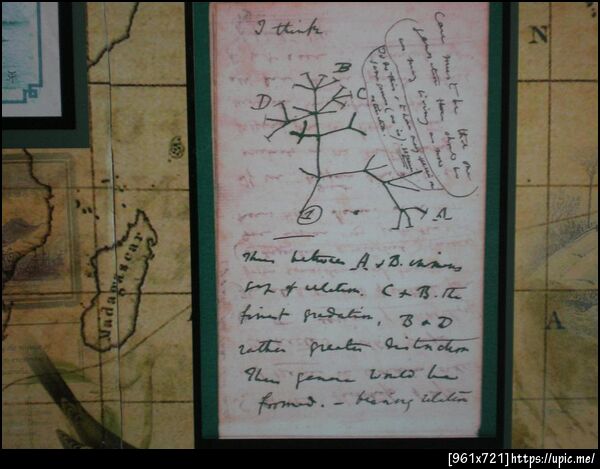 I think
B
C
D
A
1
Case must be that one
generation then should be
as many living as now
To do this & to have many species in
same genus (as is) requires
extinction
Thus between A & B. immens
gap of relation. C & B. the
finest gradation, B & D
rather greater distinction
Thus genera would be
formed. — bearing relation
Madagascar
N
A
[961x721]https://upic.me/